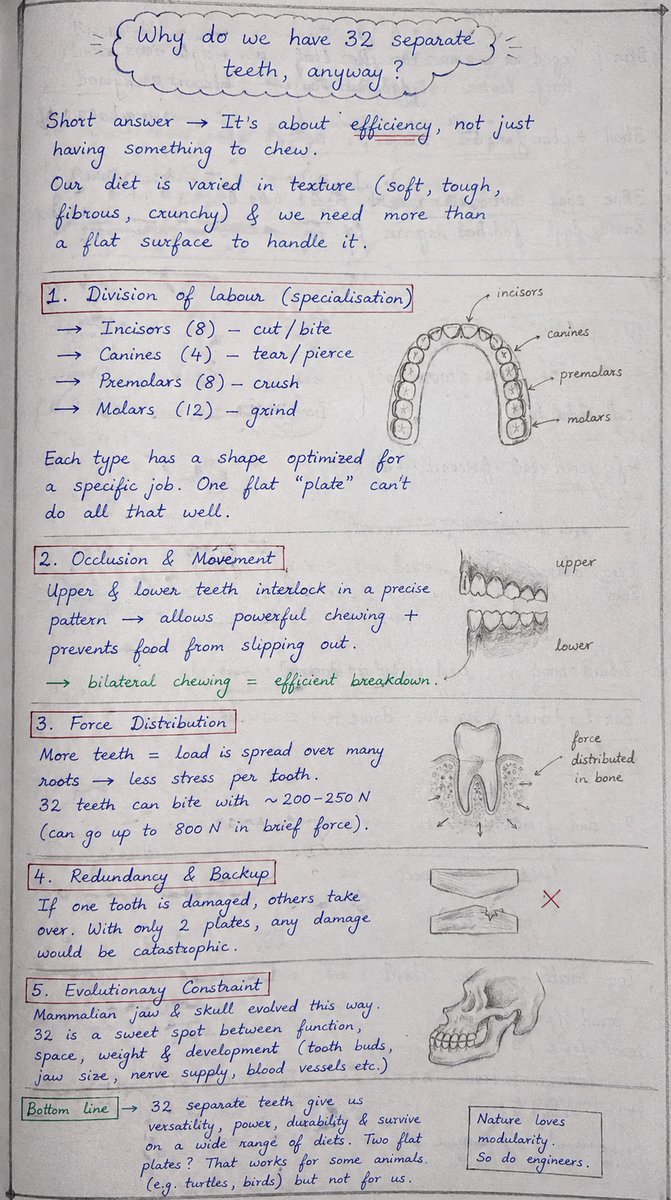 Why do we have 32 separate
teeth, anyway?
Short answer → It's about efficiency, not just
having something to chew.
Our diet is varied in texture (soft, tough,
fibrous, crunchy) & we need more than
a flat surface to handle it.
1. Division of labour (specialisation)
→ Incisors (8) – cut/bite
→ Canines (4) – tear/pierce
→ Premolars (8) – crush
→ Molars (12) – grind
incisors
canines
premolars
molars
Each type has a shape optimized for
a specific job. One flat "plate" can't
do all that well.
2. Occlusion & Movement
Upper & lower teeth interlock in a precise
pattern → allows powerful chewing +
prevents food from slipping out.
→ bilateral chewing = efficient breakdown.
upper
lower
3. Force Distribution
More teeth = load is spread over many
roots → less stress per tooth.
32 teeth can bite with ~200–250 N
(can go up to 800 N in brief force).
force
distributed
in bone
4. Redundancy & Backup
If one tooth is damaged, others take
over. With only 2 plates, any damage
would be catastrophic.
5. Evolutionary Constraint
Mammalian jaw & skull evolved this way.
32 is a sweet spot between function,
space, weight & development (tooth buds,
jaw size, nerve supply, blood vessels etc.)
Bottom line → 32 separate teeth give us
versatility, power, durability & survive
on a wide range of diets. Two flat
plates? That works for some animals
(e.g. turtles, birds) but not for us.
Nature loves
modularity.
So do engineers.